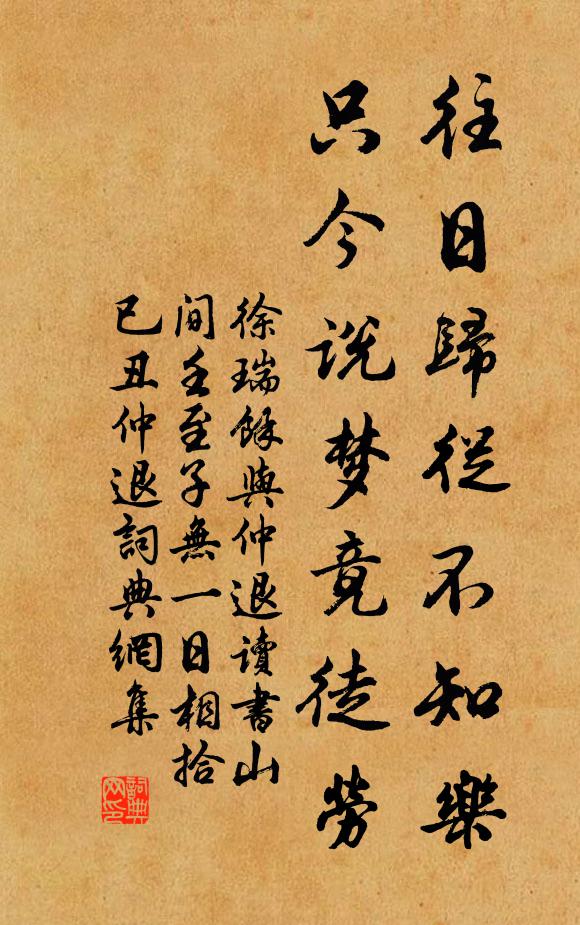 往日歸從不知樂
只今説梦竟徒勞
徐瑞餘與仲退讀書山
间壬至子無一日相拾
已丑仲退詞典網集
詞典
网印